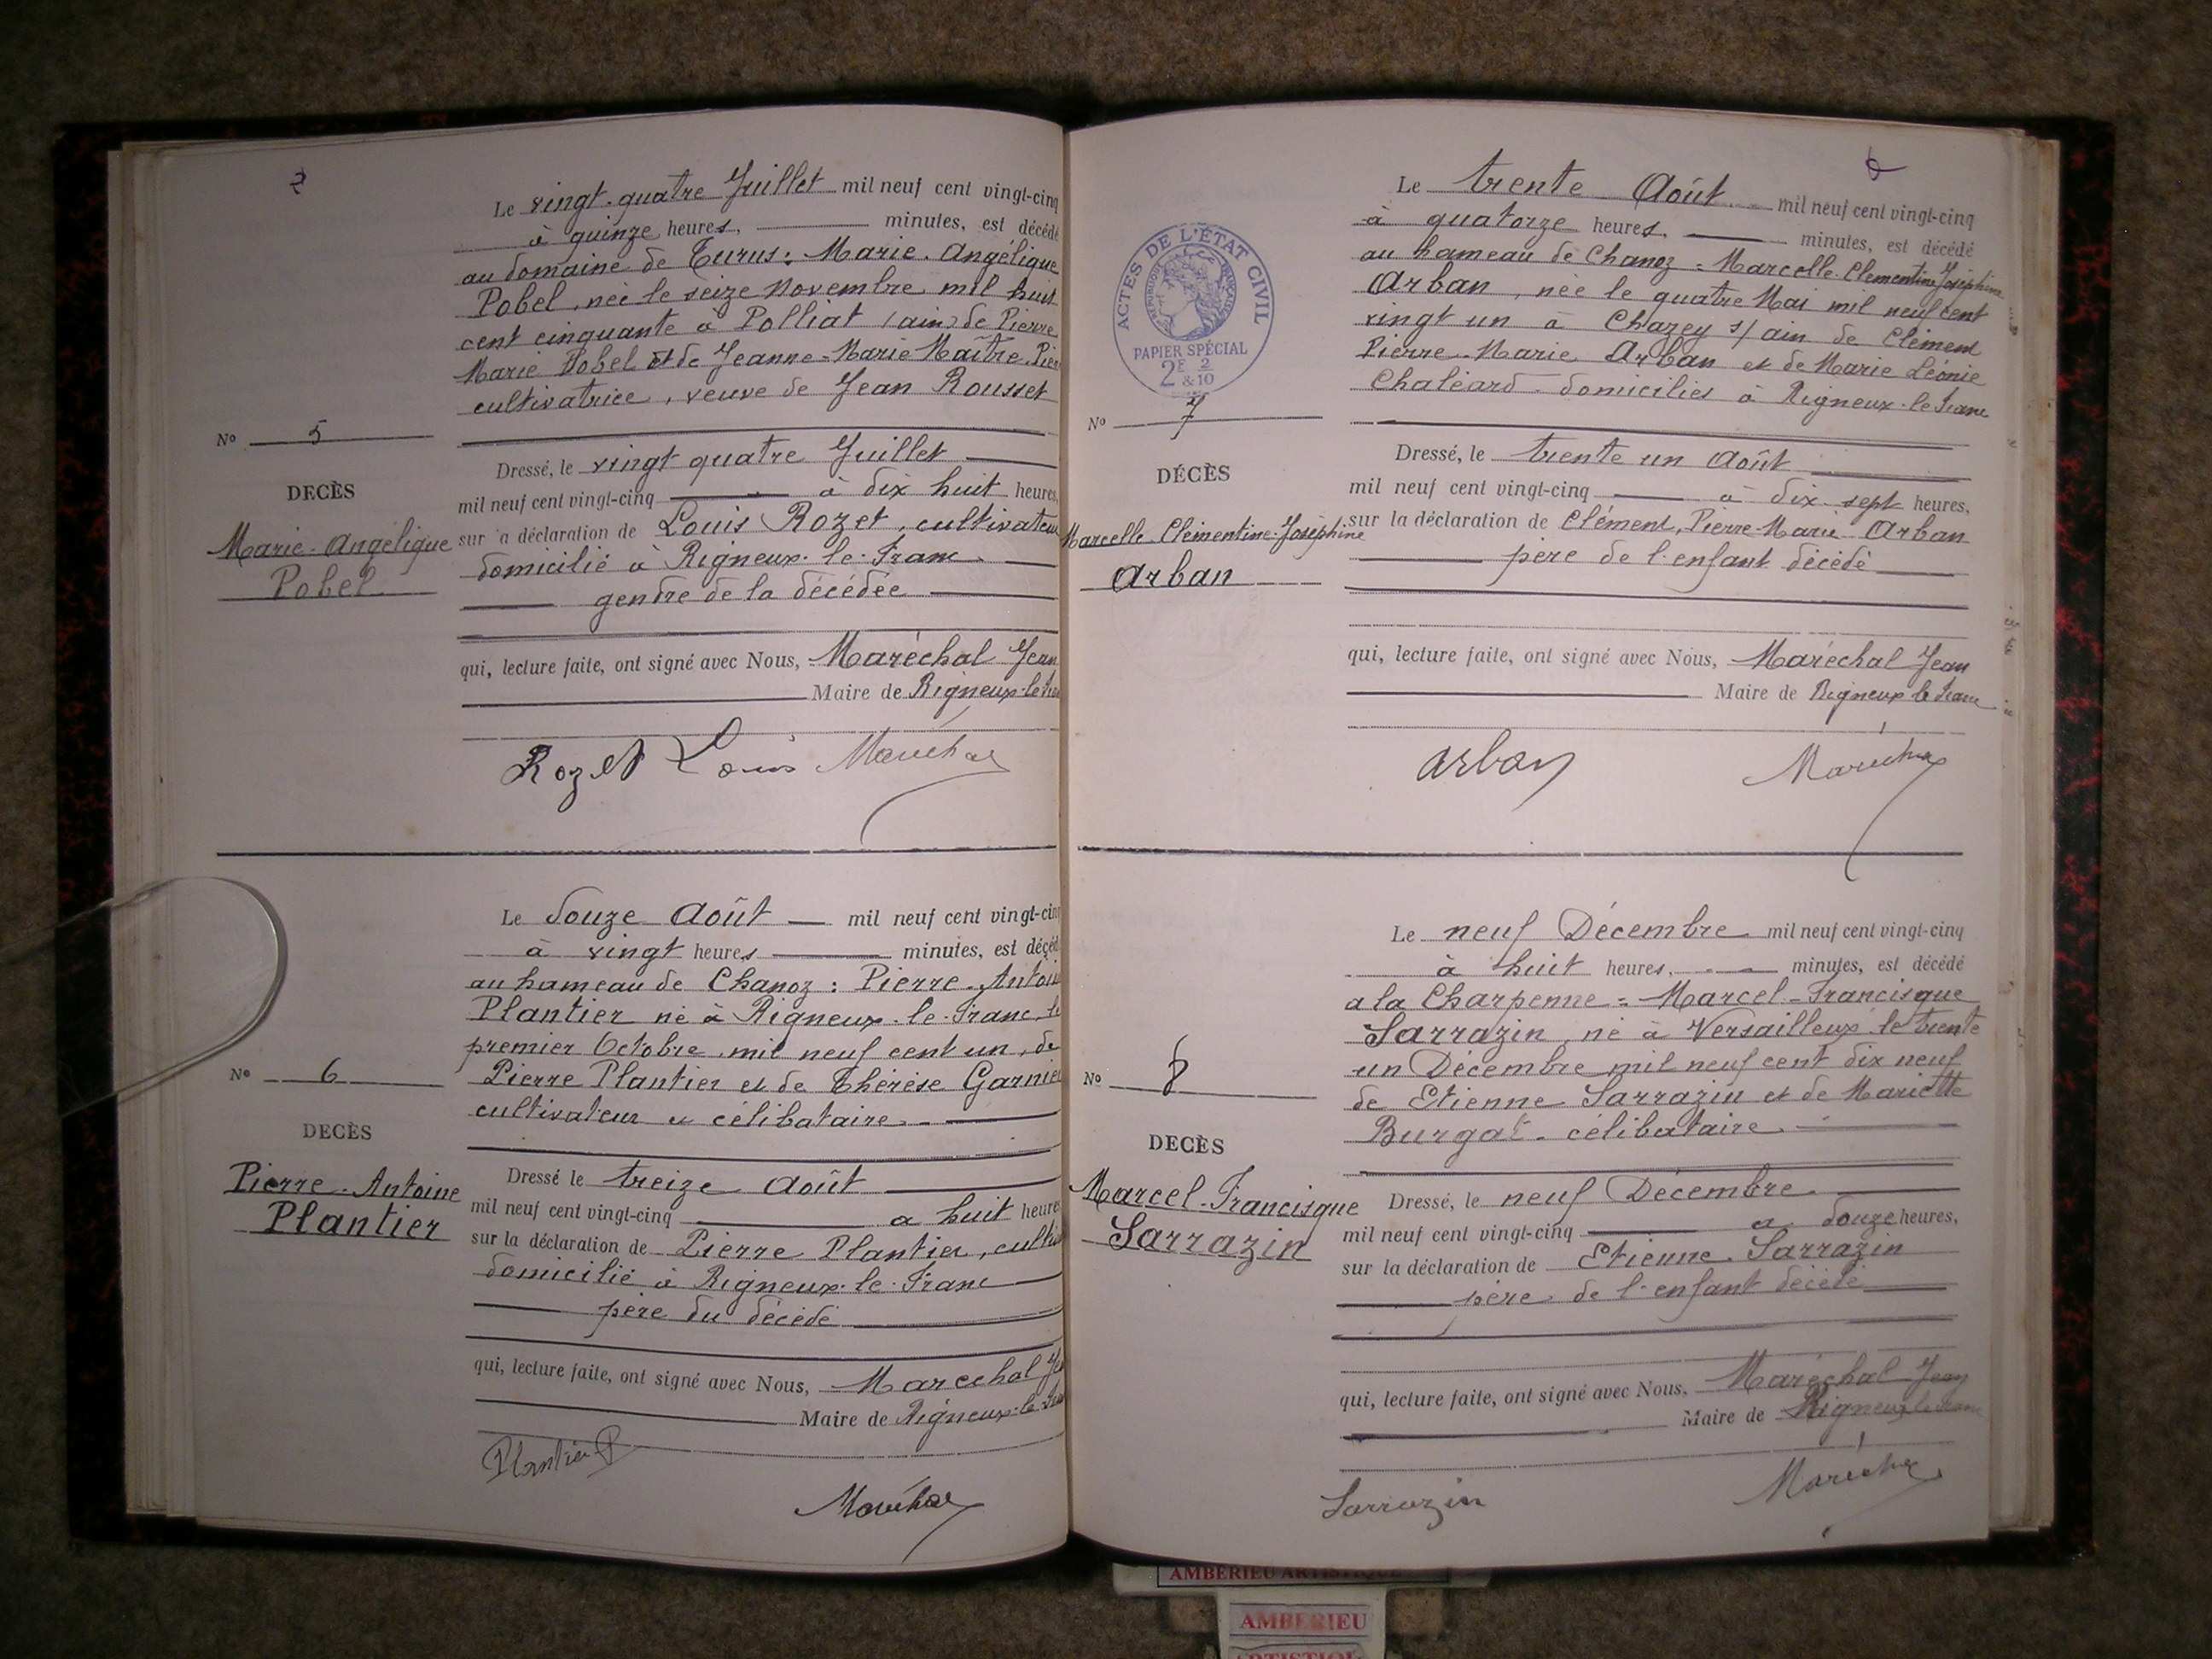 Le vingt-quatre Juillet mil neuf cent vingt-cinq
à quinze heures, minutes, est décédé
au domaine de Turus : Marie-Angélique
Pobel, née le seize Novembre mil huit
cent cinquante à Polliat (ain) de Pierre
Marie Pobel et de Jeanne-Marie Maître-Pier
cultivatrice, veuve de Jean Rousset
No 5
DECÈS
Marie-Angélique
Pobel
Dressé, le vingt quatre Juillet
mil neuf cent vingt-cinq à dix huit heures,
sur a déclaration de Louis Rozet, cultivateur
domicilié à Rigneux-le-Franc
gendre de la décédée
qui, lecture faite, ont signé avec Nous, Maréchal Jean
Maire de Rigneux-le-Franc
Rozet Louis Maréchal
Le douze Août mil neuf cent vingt-cinq
à vingt heures minutes, est décédé
au hameau de Chanoz : Pierre-Antoine
Plantier né à Rigneux-le-Franc, le
premier Octobre mil neuf cent un, de
Pierre Plantier et de Thérèse Garnier
cultivateur et célibataire.
No 6
DECÈS
Pierre-Antoine
Plantier
Dressé le treize Août
mil neuf cent vingt-cinq a huit heure
sur la déclaration de Pierre Plantier, culti
domicilié à Rigneux-le-Franc
père du décédé
qui, lecture faite, ont signé avec Nous, Marechal Je
Maire de Rigneux-le-Fra
Plantier P
Maréchal
Le trente Août mil neuf cent vingt-cinq
à quatorze heures, minutes, est décédé
au hameau de Chanoz = Marcelle-Clementine Joséphine
Arban, née le quatre Mai mil neuf cent
vingt un à Chazey s/ ain de Clément
Pierre-Marie Arban et de Marie Léonie
Chaléard - domiciliés à Rigneux-le-Franc
ACTES DE L'ÉTAT CIVIL
RÉPUBLIQUE FRANÇAISE
PAPIER SPÉCIAL
2E 2
& 10
No 7
DÉCÈS
Marcelle-Clémentine-Joséphine
Arban
Dressé, le trente un Août
mil neuf cent vingt-cinq à dix-sept heures,
sur la déclaration de Clément, Pierre-Marie Arban
père de l'enfant décédé
qui, lecture faite, ont signé avec Nous, Maréchal Jean
Maire de Rigneux le Franc
Arban Maréchal
Le neuf Décembre mil neuf cent vingt-cinq
à huit heures, minutes, est décédé
a la Charpenne = Marcel-Francisque
Sarrazin, né à Versailleux le trente
un Décembre mil neuf cent dix neuf
de Etienne Sarrazin et de Mariette
Burgat - célibataire.
No 8
DECÈS
Marcel-Francisque
Sarrazin
Dressé, le neuf Décembre
mil neuf cent vingt-cinq a douze heures,
sur la déclaration de Etienne Sarrazin
père de l'enfant décédé
qui, lecture faite, ont signé avec Nous, Maréchal Jean
Maire de Rigneux le Franc
Sarrazin Maréchal
AMBERIEU ARTISTIQUE
AMBERIEU
ARTISTIQU